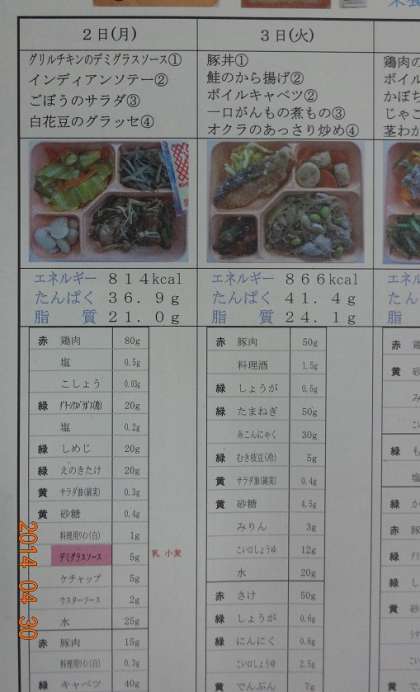 2日(月)
グリルチキンのデミグラスソース①
インディアンソテー②
ごぼうのサラダ③
白花豆のグラッセ④
エネルギー 814kcal
たんぱく 36.9g
脂 質 21.0g
赤 鶏肉 80g
塩 0.5g
こしょう 0.03g
緑 20g
塩 0.2g
緑 しめじ 20g
緑 えのきたけ 20g
黄 サラダ油(綿実) 0.3g
黄 砂糖 0.4g
料理用ワイン(白) 1g
デミグラスソース 5g 乳 小麦
ケチャップ 5g
ウスターソース 2g
水 25g
赤 豚肉 15g
料理用ワイン(白) 0.3g
緑 キャベツ 40g
3日(火)
豚丼①
鮭のから揚げ②
ボイルキャベツ②
一口がんもの煮もの③
オクラのあっさり炒め④
エネルギー 866kcal
たんぱく 41.4g
脂 質 24.1g
赤 豚肉 50g
料理酒 1.5g
緑 しょうが 0.5g
緑 たまねぎ 50g
糸こんにゃく 30g
緑 むき枝豆(冷) 5g
黄 サラダ油(綿実) 0.4g
黄 砂糖 4.5g
みりん 3g
こい口しょうゆ 12g
水 20g
赤 さけ 50g
緑 しょうが 0.6g
緑 にんにく 0.6g
こい口しょうゆ 2.5g
黄 でんぷん 7g
鶏肉の
ボイル
かぼち
じゃこ
茎わか
エネル
たんぱ
脂
赤
黄
緑
緑
赤
緑
黄
黄
2014 04 30